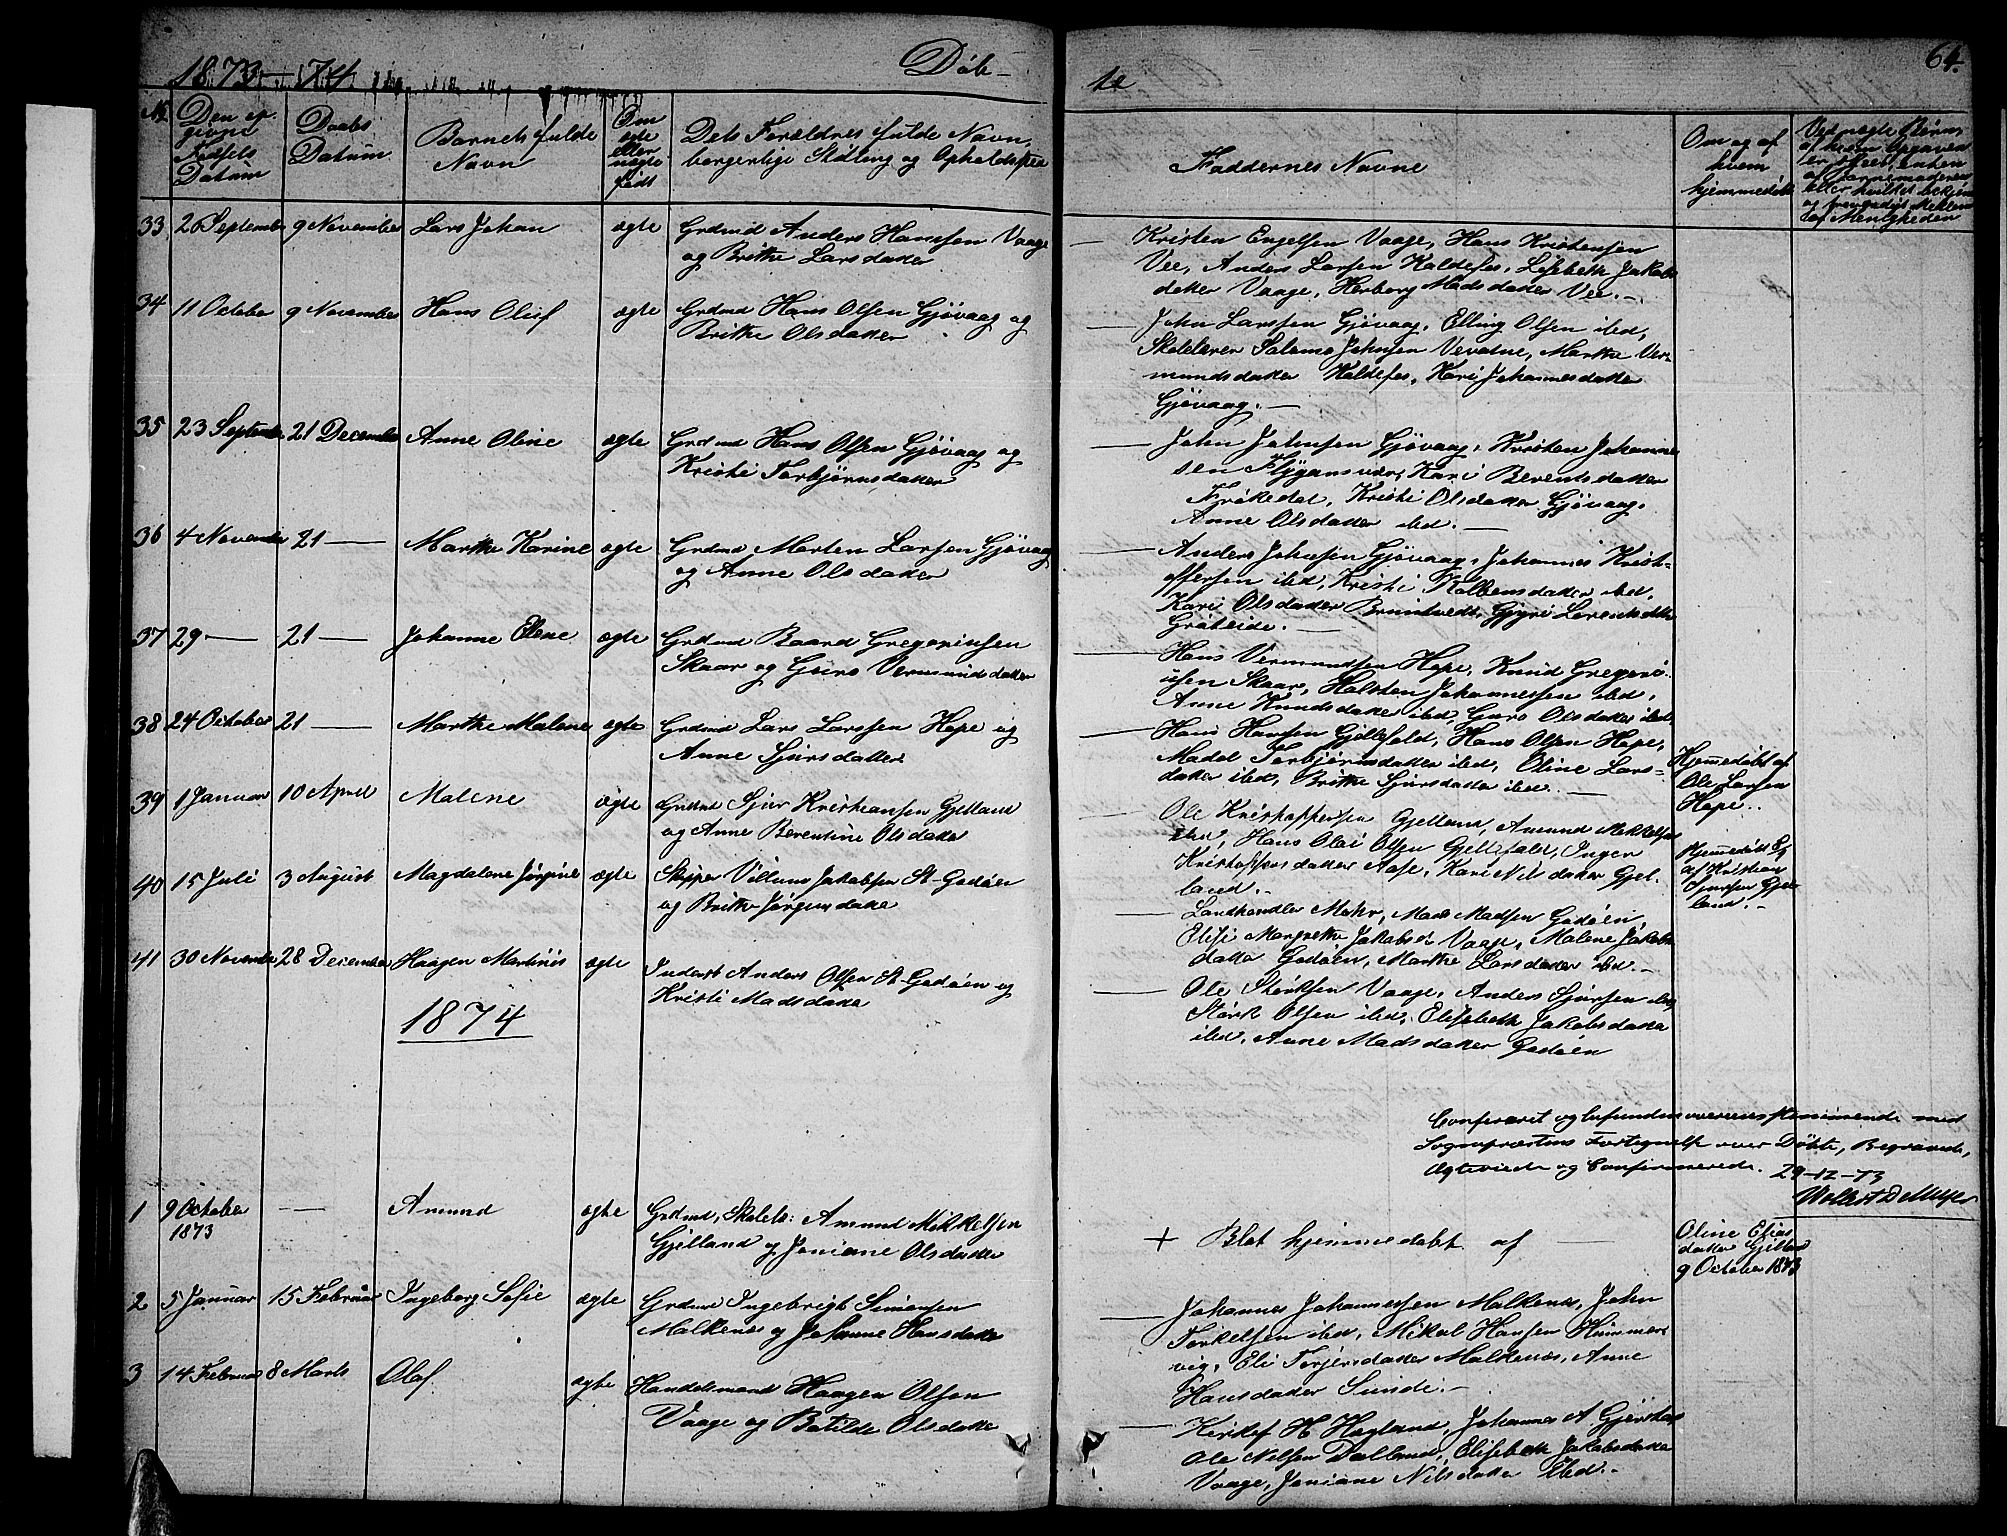 1873-74 Døb- te 64.
No
Den op-
givne
Fødsels
Datum
Daabs
Datum
Barnets fulde
Navn
Om
ægte
eller
uægte
født
Dets Forældres fulde Navn,
borgerlige Stilling og Opholdssted
Faddernes Navne
Om og af
hvem
hjemmedøbt
Ved uægte Børn
af hvem Opgaven
er skeet, enten
af Barnemoderen
eller hvilket bekjendt
og troværdigt Medlem
af Menigheden
33 26 September 9 November Lars Johan ægte Grdmd Anders Hanssen Vaage
og Brithe Larsdatter
Kristen Engelsen Vaage, Hans Kristensen
Vee, Anders Larsen Kaldefos, Lisbeth Jakobs
datter Vaage, Herborg Madsdatter Vee.-
34 11 October 9 November Hans Oluf ægte Grdmd Hans Olsen Gjøvaag og
Brithe Olsdatter
John Larssen Gjøvaag, Elling Olsen ibd,
Skolelærer Salomo Johnsen Vevatne, Marthe Ver-
mundsdatter Kaldefos, Kari Johannesdatter
Gjøvaag.-
35 23 September 21 December Anne Oline ægte Grdmd Hans Olsen Gjøvaag og
Kristi Torbjørnsdatter
John Johnsen Gjøvaag, Kristen Johannes
sen Flygansvær, Kari Berentsdatter
Frøkedal, Kristi Olsdatter Gjøvaag,
Anne Olsdatter ibd.-
36 4 November 21 - Marthe Karine ægte Grdmd Morten Larsen Gjøvaag
og Anne Olsdatter
Anders Johnsen Gjøvaag, Johannes Krist-
offersen ibd, Kristi Kolbensdatter ibd,
Kari Olsdatter Bruntvedt, Gjyri Lorentsdatter
Grøteide.-
37 29 - 21 - Johanne Elene ægte Grdmd Baard Gregoriussen
Skaar og Guro Vermundsdatter
Hans Vermundsen Hope, Knud Gregori-
ussen Skaar, Halsten Johannessen ibd,
Anne Knudsdatter ibd, Guro Olsdatter ibd,
38 24 October 21 - Marthe Malene ægte Grdmd Lars Larssen Hope og
Anne Sjursdatter
Hans Hansen Gjellefald, Hans Olsen Hope,
Madel Torbjørnsdatter ibd, Oline Lars-
datter ibd, Brithe Sjursdatter ibd.-
Hjemmedøbt af
Ole Larsen
Hope.
39 1 Januar 10 April Malene ægte Grdmd Sjur Kristiansen Gjelland
og Anne Berentine Olsdatter
Ole Kristoffersen Gjelland, Amund Mikkelsen
ibd, Hans Olai Olsen Gjellefald, Inger
Kristoffersdatter Aase, Kari Nilsdatter Gjel-
land.-
Hjemmedøbt
af Kristian
Sjursen Gjel-
land.-
40 15 Juli 3 August Magdalene Jørgine ægte Skipper Villum Jakobsen St-Godøen
og Brithe Jørgensdatter
Landhandler Mohr, Mads Madsen Godøen,
Elisi Margrethe Jakobsd Vaage, Malene Jakobs
datter Godøen, Marthe Larsdatter ibd.-
41 30 November 28 December Haagen Martinus ægte Inderst Anders Olsen St-Godøen og
Kristi Madsdatter
Ole Størksen Vaage, Anders Sjursen ibd,
Størk Olsen ibd, Elisebeth Jakobsdatter
ibd, Anne Madsdatter Godøen
1874
Confereret og befunden overensstemmende med
Sognepræstens Fortegnelse over Døbte, Begravede,
Ægteviede og Confirmerede. 29-12-73
Wollert D Meyer
1 9 October
1873 - Amund ægte Grdmd, Skolel: Amund Mikkelsen
Gjelland og Joniane Olsdatter
+ Blot hjemmedøbt af -
Oline Elias
datter Gjelland
9 October 1873
2 5 Januar 15 Februar Ingeborg Sofie ægte Grdmd Ingebrigt Simonsen
Malkenes og Johanne Hansdatter
Johannes Johannessen Malkenes, John
Torkelsen ibd, Mikal Hansen Hummer
vig, Eli Torjersdatter Malkenes, Anne
Hansdatter Sunde.-
3 14 Februar 8 Marts Olaf ægte Handelsmand Haagen Olsen
Vaage og Botilde Olsdatter
H Hagland, Johannes A Gjerstad
Ole Nilsen Dalland, Elisebeth Jakobsdatter
Vaage, Joniane Nilsdatter Ibid.-